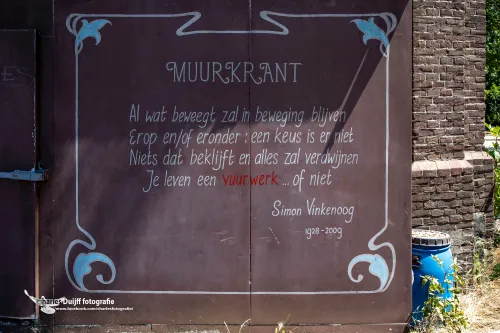 MUURKRANT
Al wat beweegt zal in beweging blijven
Erop en/of eronder : een keus is er niet
Niets dat beklijft en alles zal verdwijnen
Je leven een vuurwerk ... of niet
Simon Vinkenoog
1928 - 2009
Duijff fotografie
www.facebook.com/charlesfotografie/